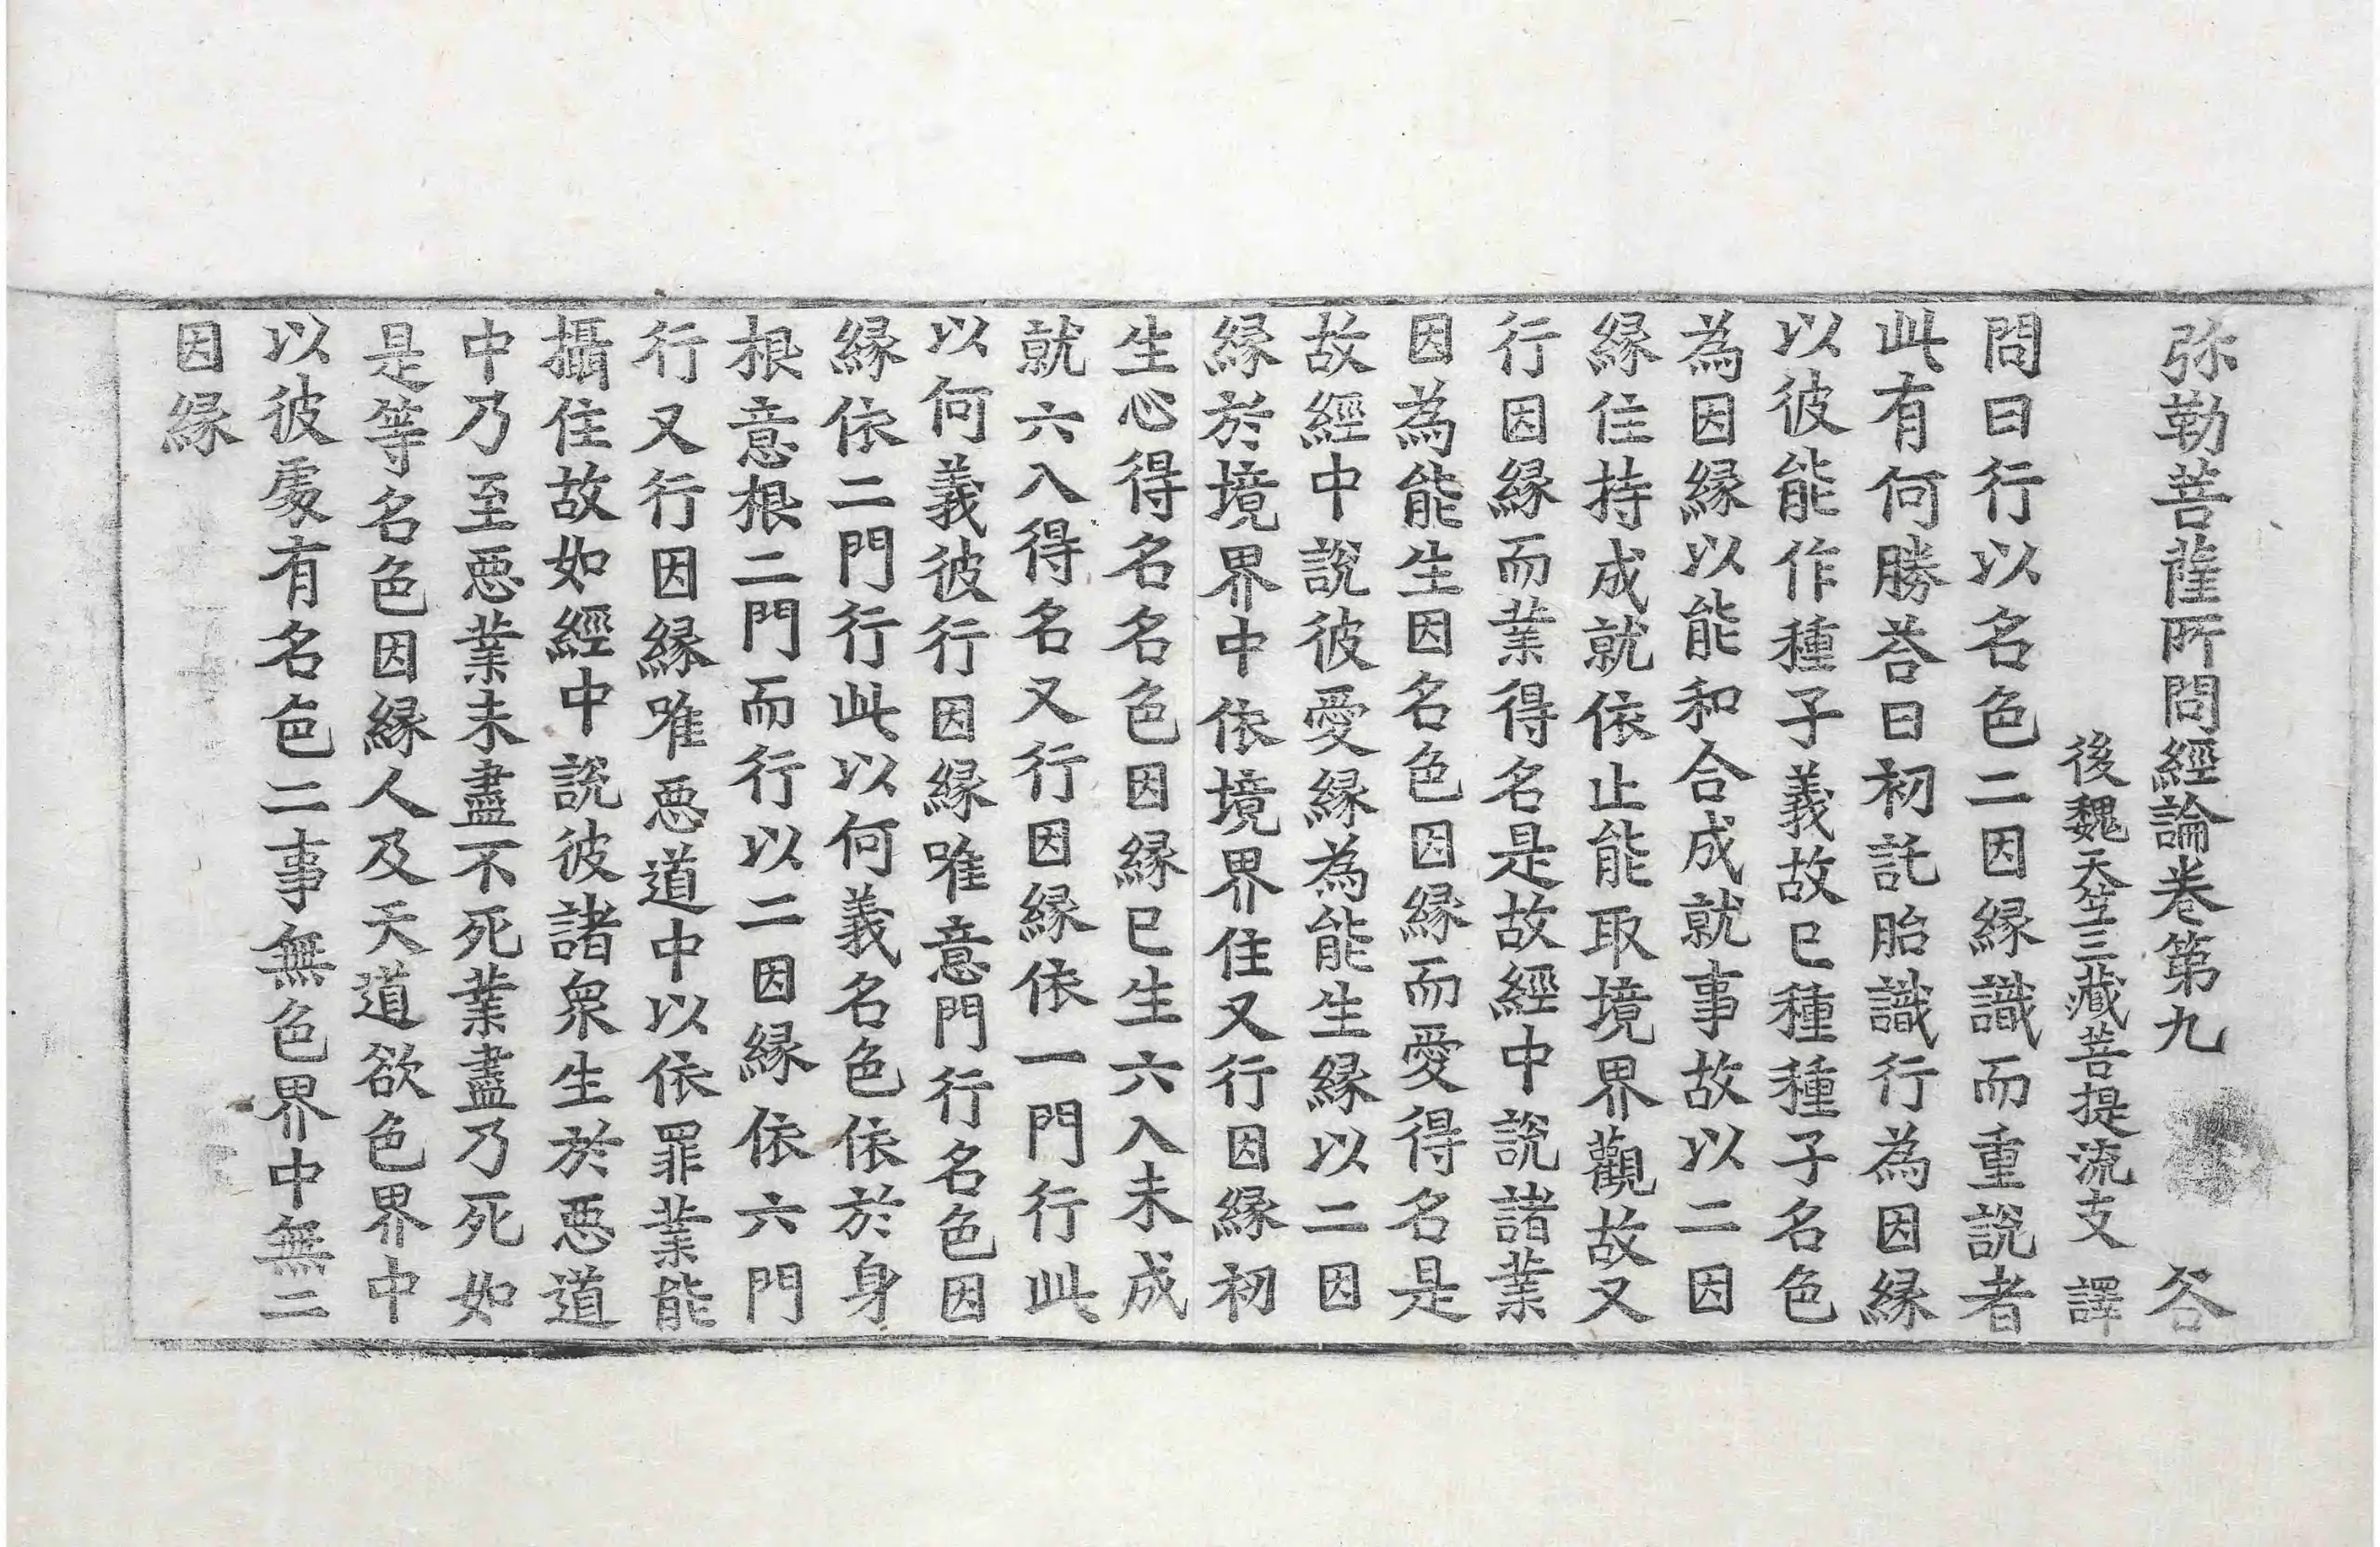 弥勒菩薩所問經論卷第九 谷
後魏天竺三藏菩提流支 譯
問曰行以名色二因縁識而重說者
此有何勝荅曰初託胎識行為因縁
以彼能作種子義故已種種子名色
為因縁以能和合成就事故以二因
縁住持成就依止能取境界觀故又
行因縁而業得名是故經中說諸業
因為能生因名色因縁而愛得名是
故經中說彼愛縁為能生縁以二因
縁於境界中依境界住又行因縁初
生心得名名色因縁已生六入未成
就六入得名又行因縁依一門行此
以何義彼行因縁唯意門行名色因
縁依二門行此以何義名色依於身
根意根二門而行以二因縁依六門
行又行因縁唯惡道中以依罪業能
攝住故如經中說彼諸衆生於惡道
中乃至惡業未盡不死業盡乃死如
是等名色因縁人及天道欲色界中
以彼處有名色二事無色界中無二
因縁